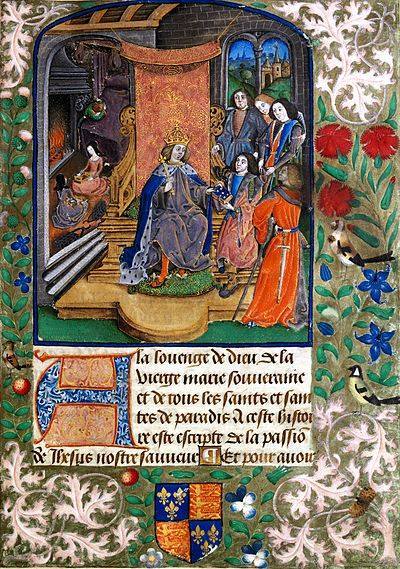 A la louenge de dieu de la
vierge marie souueraine
et de tous les saints et sain
tes de paradis A ceste histoi
re est escripte de la passiõ
de Ihesus nostre sauueur ¶ Et pour auoir